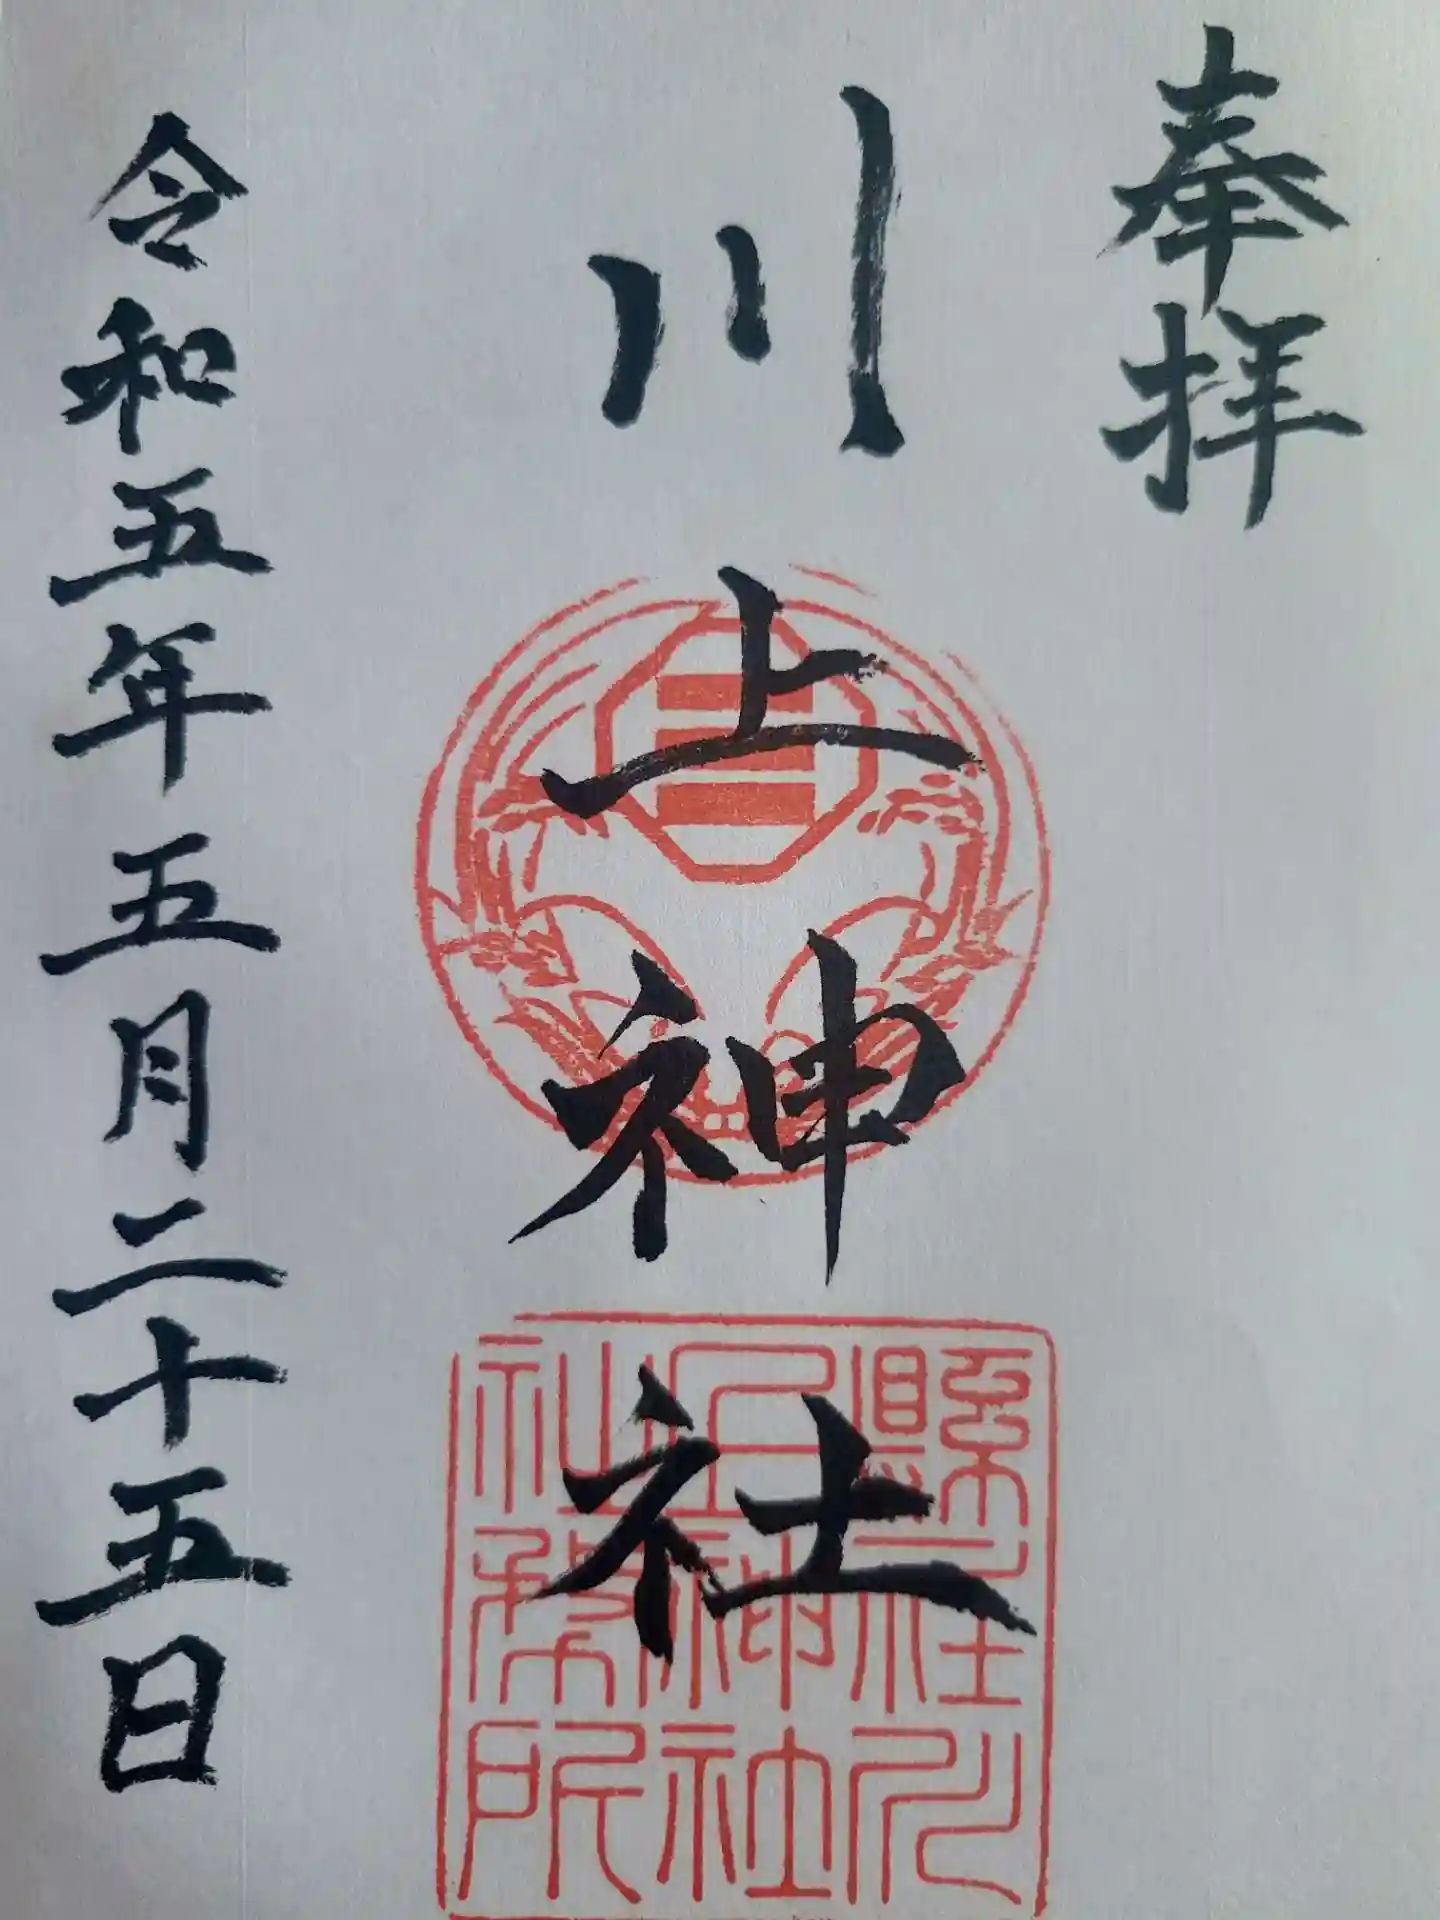 奉拝
川上神社
令和五年五月二十五日
縣社川
上神社
社務所